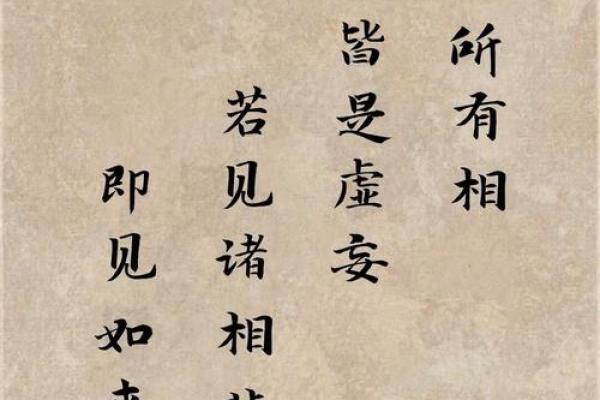 所有相
皆是虚妄
若见诸相
即见如